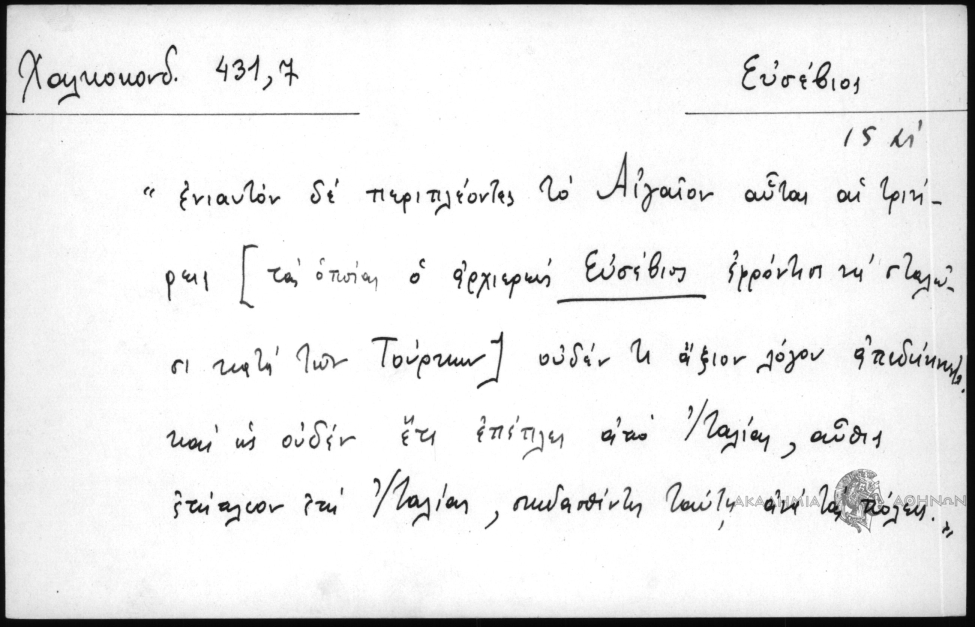 Χαλκοκονδ. 431,7
Εὐσέβιος
15 αἰ
“ ἐνιαυτόν δέ περιπλέοντες τό Αἰγαῖον αὗται αἱ τριή-
ρεις [τάς ὁποίας ὁ ἀρχιερεύς Εὐσέβιος ἐφρόντισε νά σταλῶ-
σι κατά τῶν Τούρκων] οὐδέν τι ἄξιον λόγου ἀπεδείκνυντο.
καί ὡς οὐδέν ἔτι ἐπέπλει ἀπό Ἰταλίας, αὖθις
ἐπί Ἰταλίας, σκεδασθέντες ταύτῃ ἀνά τάς πόλεις.”
ΑΚΑΔΗΜΙΑ ΑΘΗΝΩΝ